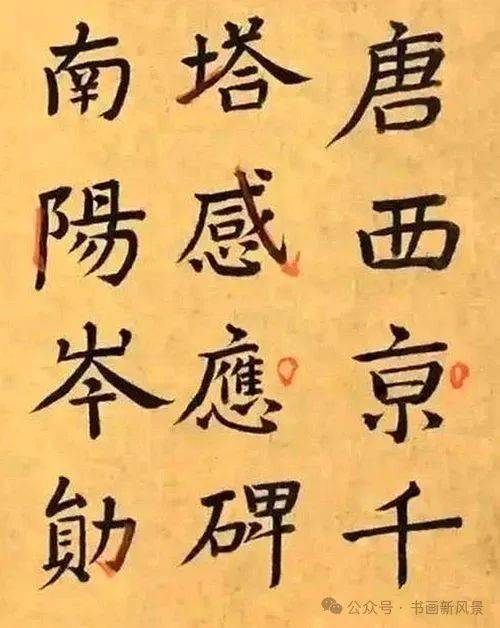 唐西京千
塔感應碑
南陽岑勛
公众号·书画新风景